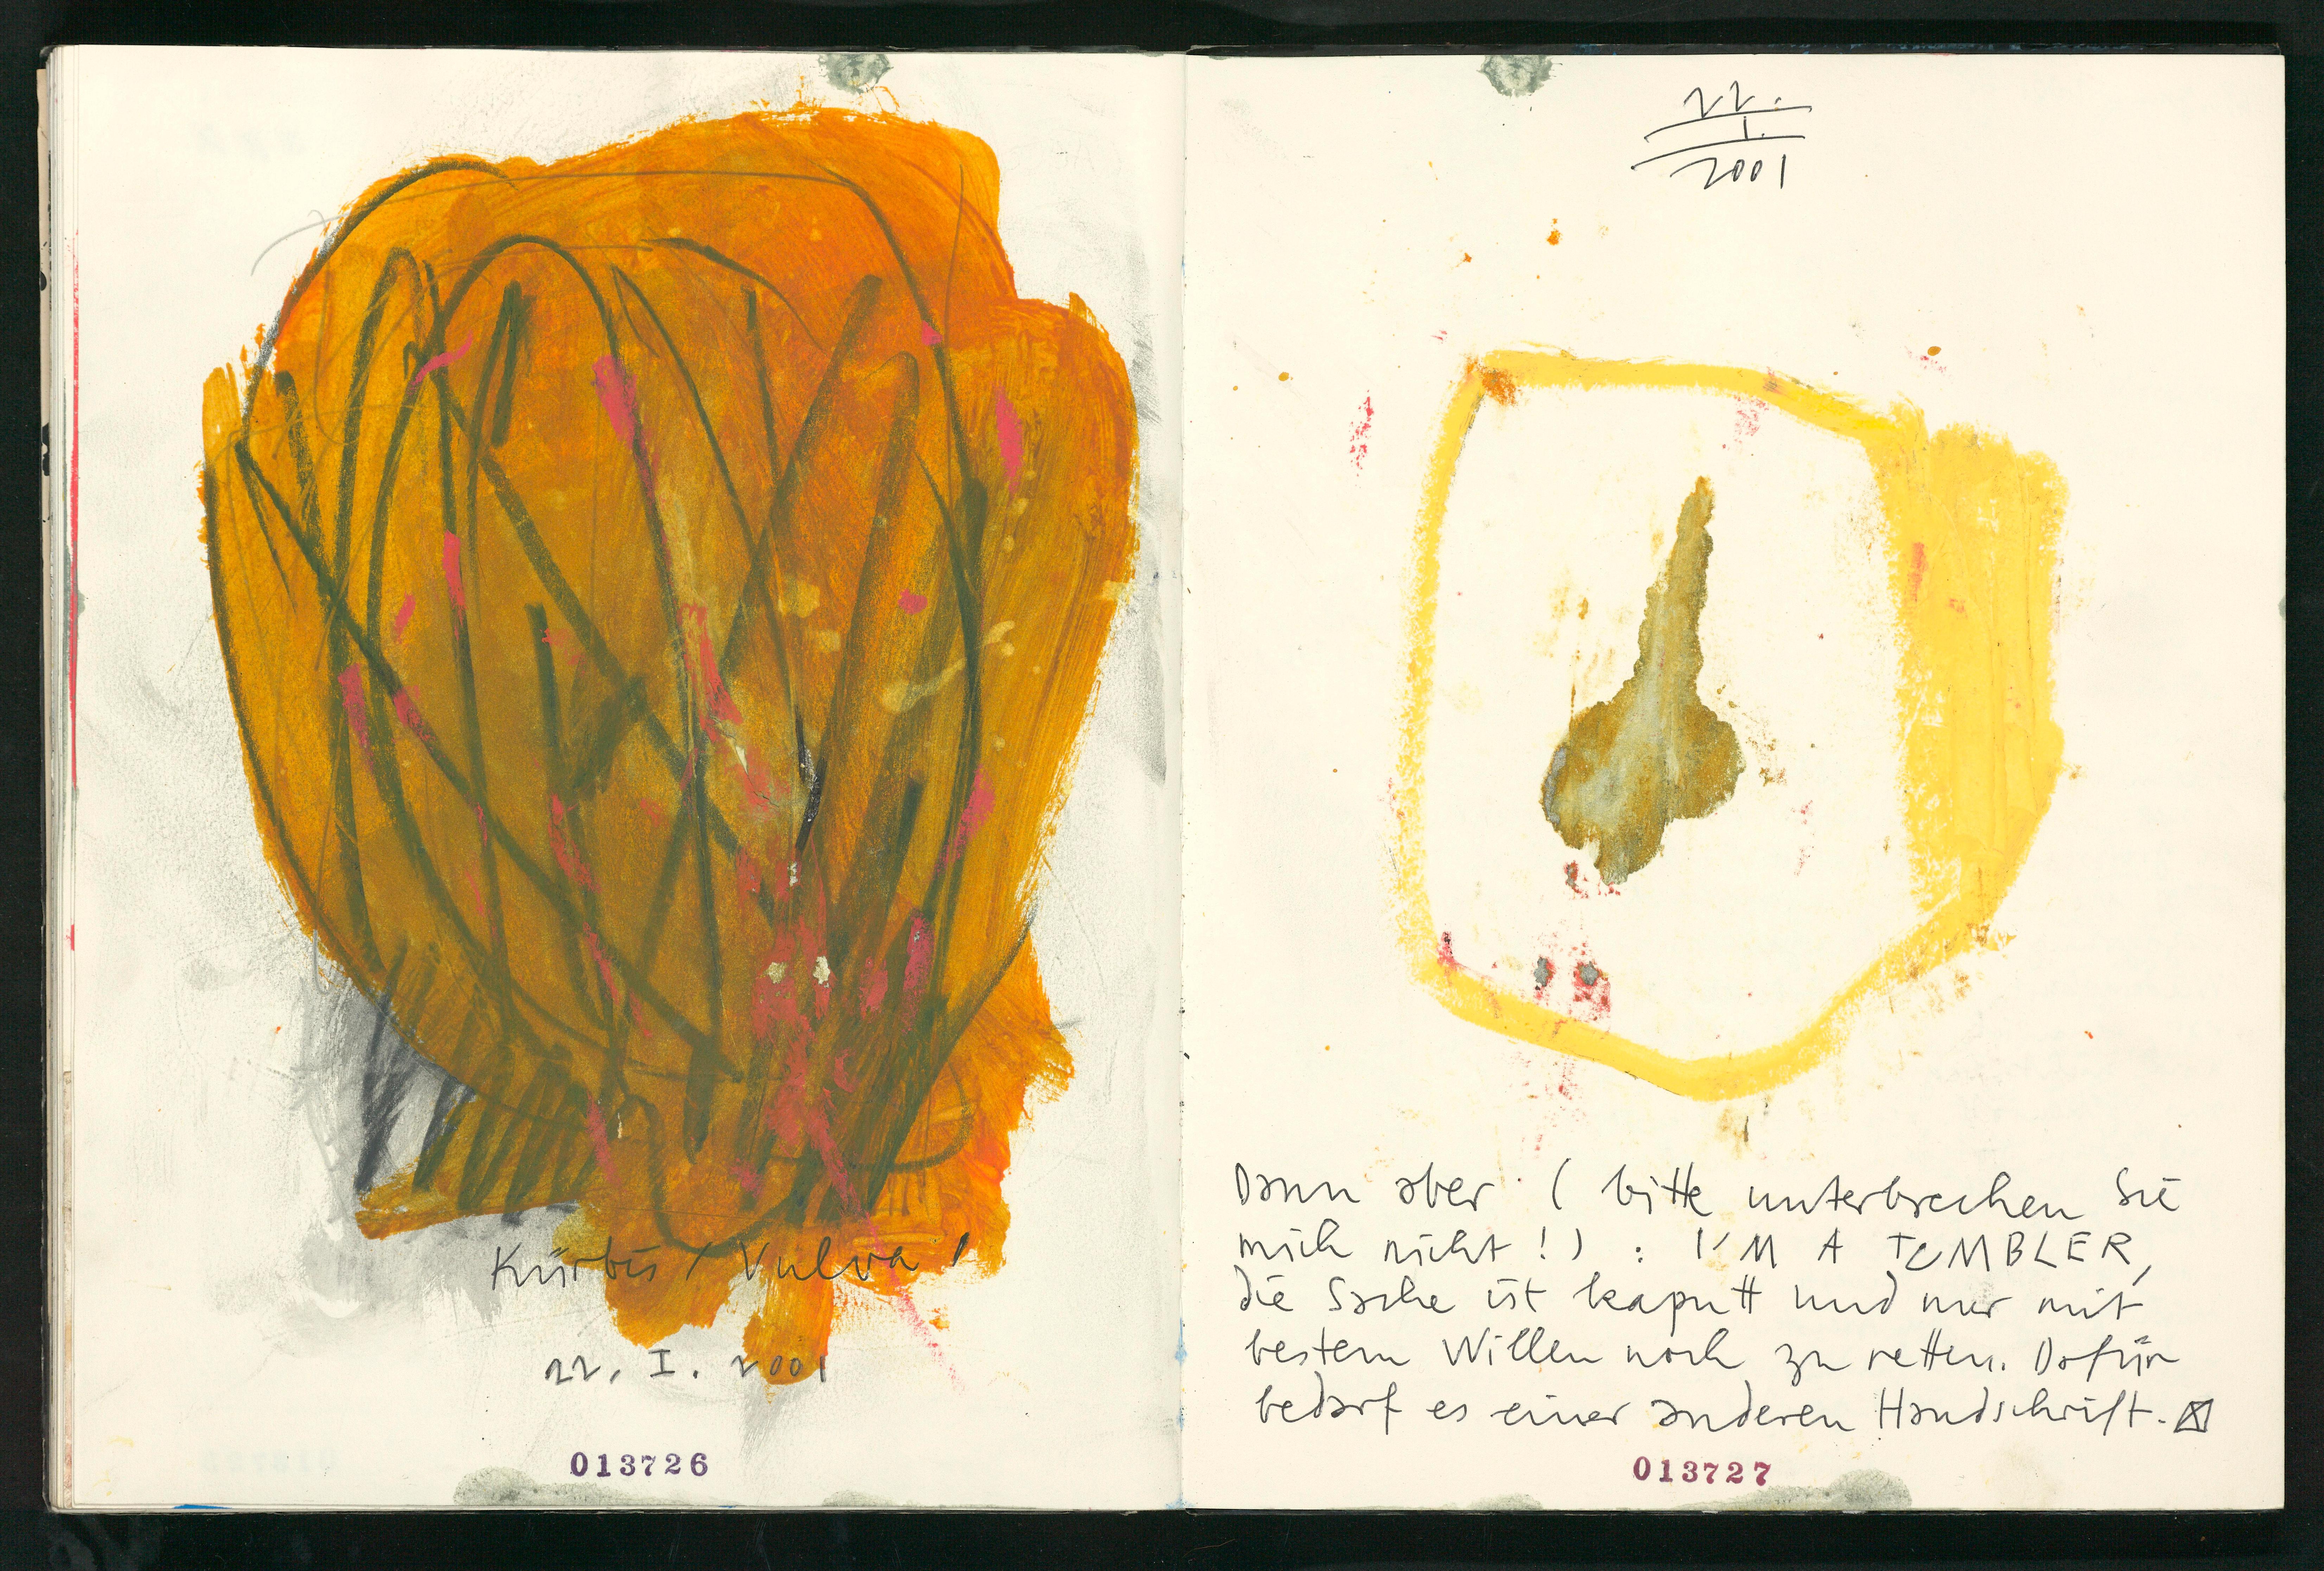 Kürbis / Vulva!
22. I. 2001
013726
22.
I.
2001
Dann aber (bitte unterbrechen Sie
mich nicht!) : I'M A TUMBLER,
die Sache ist kaputt und nur mit
bestem Willen noch zu retten. Dafür
bedarf es einer anderen Handschrift.
013727